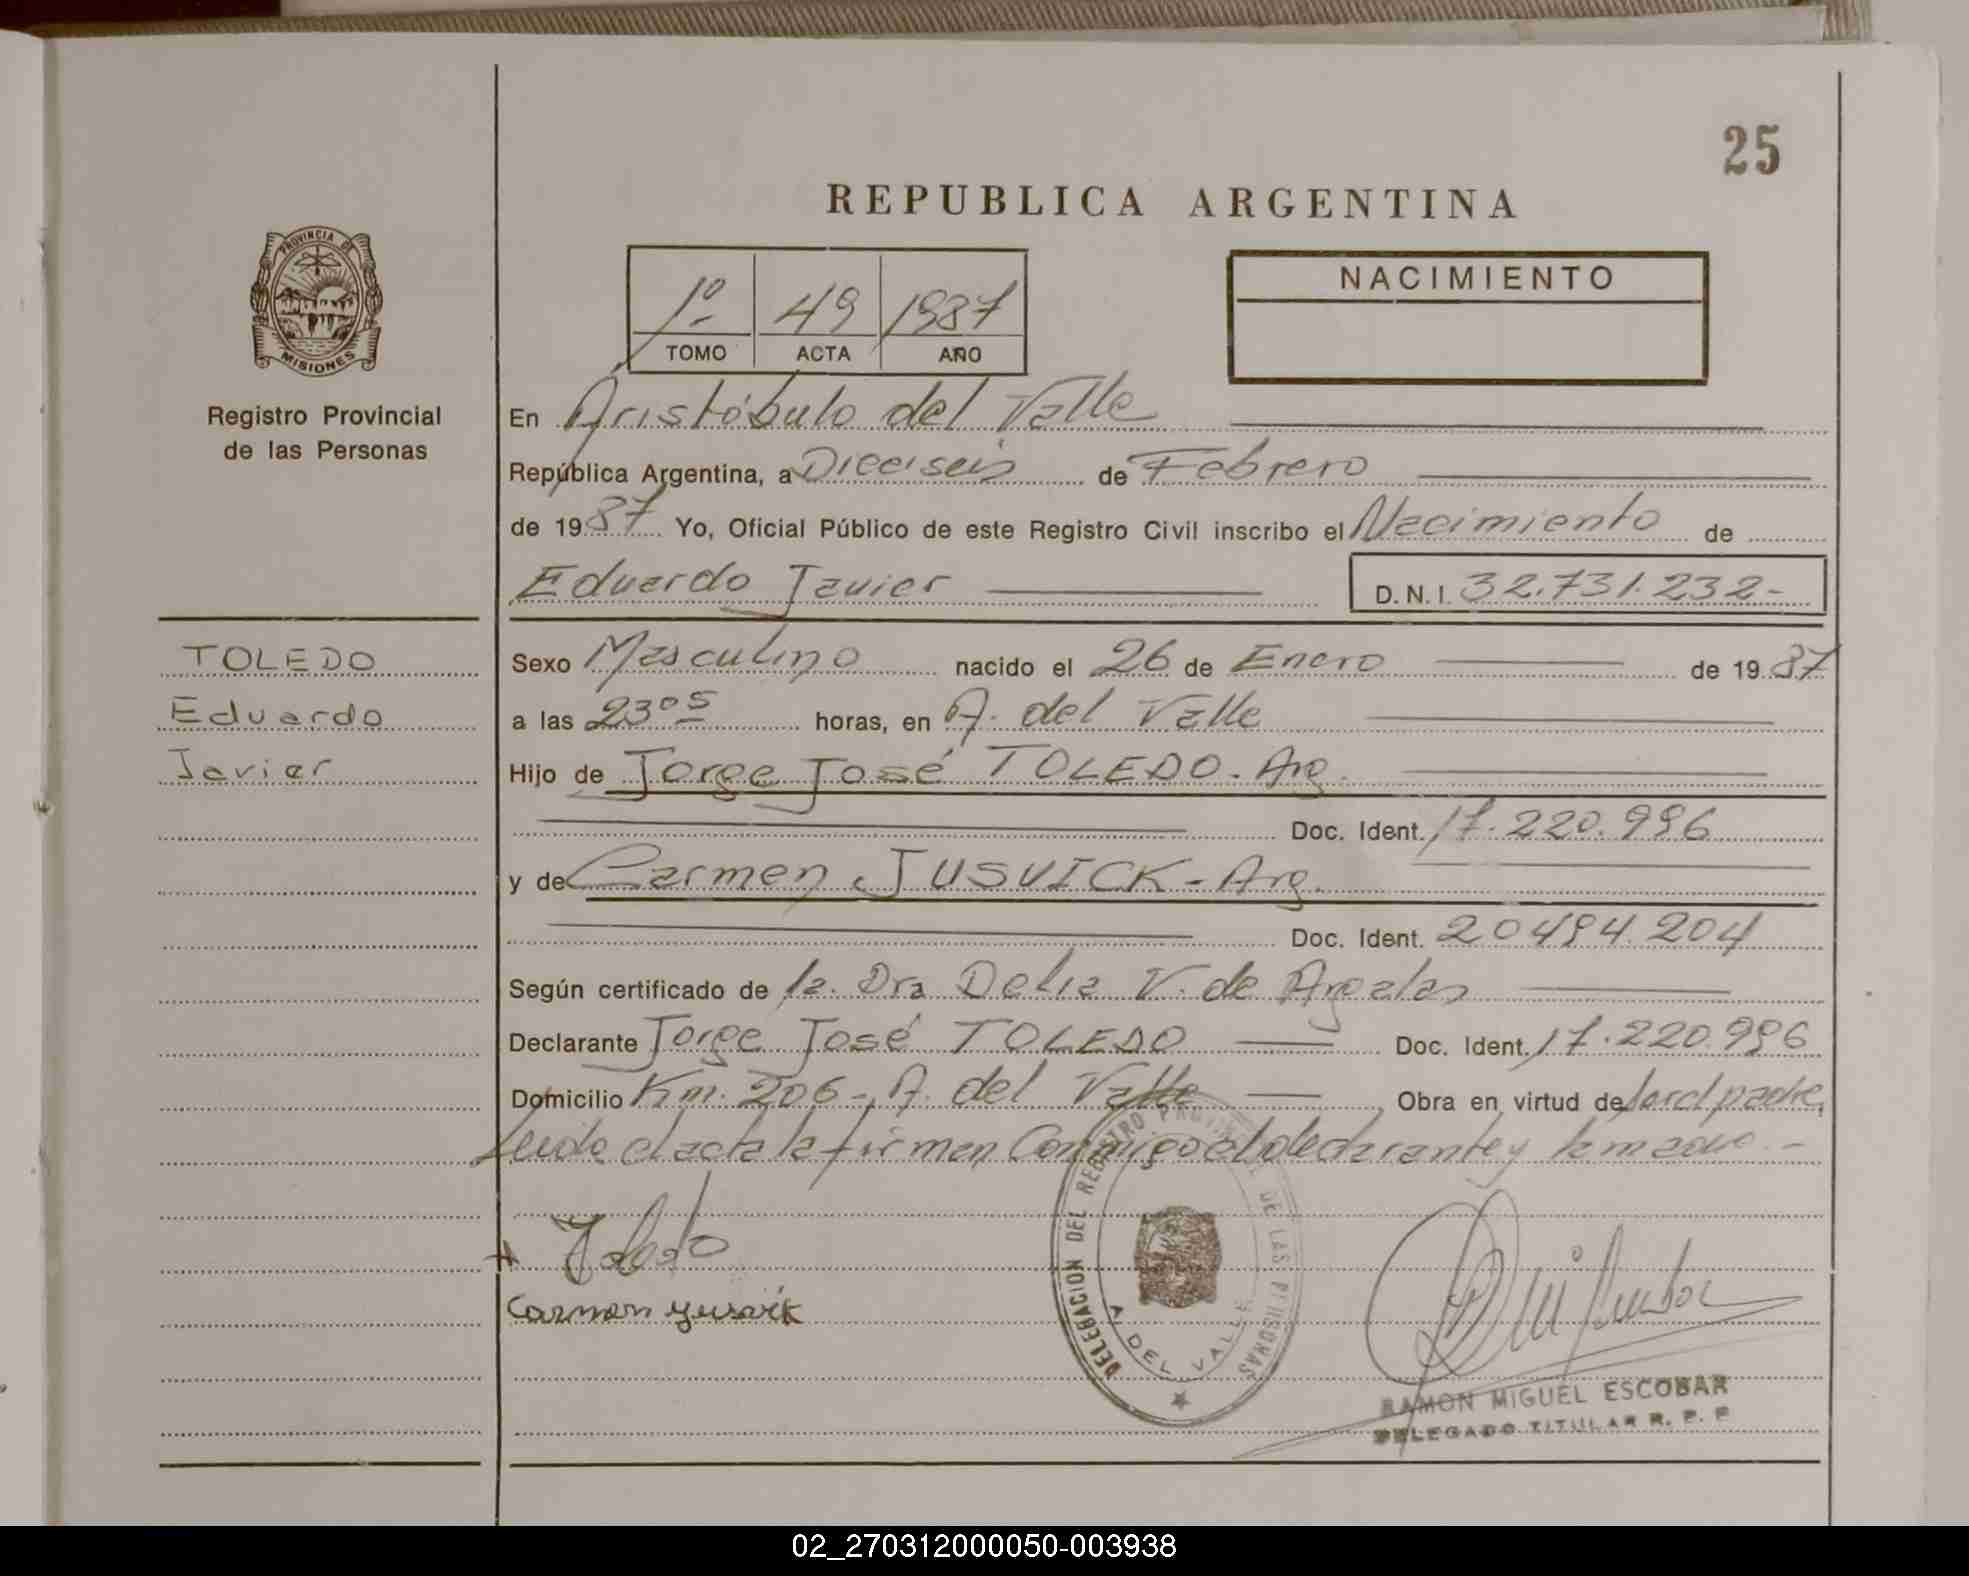 25
REPUBLICA ARGENTINA
PROVINCIA DE
MISIONES
Registro Provincial
de las Personas
1º 49 1987
TOMO ACTA AÑO
NACIMIENTO
En Aristóbulo del Valle
República Argentina, a Dieciseis de Febrero
de 1987 Yo, Oficial Público de este Registro Civil inscribo el Nacimiento de
Eduardo Javier D.N.I. 32.731.232-
TOLEDO
Eduardo
Javier
Sexo Masculino nacido el 26 de Enero de 1987
a las 23 05 horas, en A. del Valle
Hijo de Jorge José TOLEDO - Arg.
Doc. Ident. 17.220.996
y de Carmen JUSVICK - Arg.
Doc. Ident. 20494.204
Según certificado de la Dra Delia V. de
Declarante Jorge José TOLEDO Doc. Ident. 17.220.996
Domicilio Km. 206 - A. del Valle Obra en virtud de padre,
Leida el acta la firman Conmigo el declarante y la madre.-
Toledo
Carmen yusvik
DELEGACION DEL REGISTRO PROVINCIAL DE LAS PERSONAS
A. DEL VALLE
RAMON MIGUEL ESCOBAR
DELEGADO TITULAR R. P. P
02_270312000050-003938